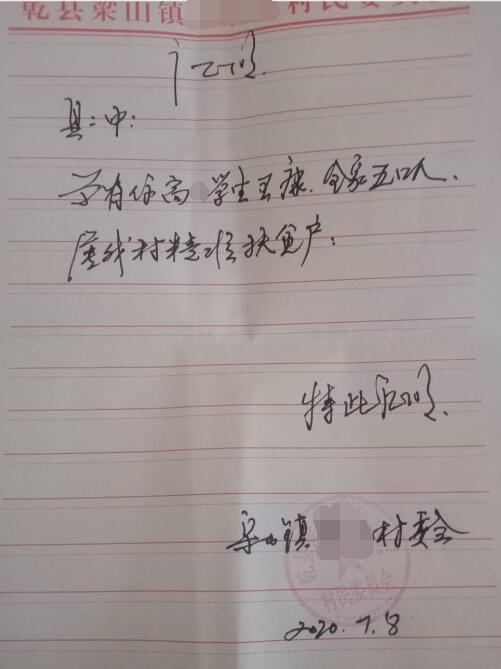 乾县梁山镇 村民委员
证明
县二中:
兹有你高 学生王康、全家五口人、
属我村精准扶贫户:
特此证明、
梁山镇 村委会
村民委员会
2020.7.8